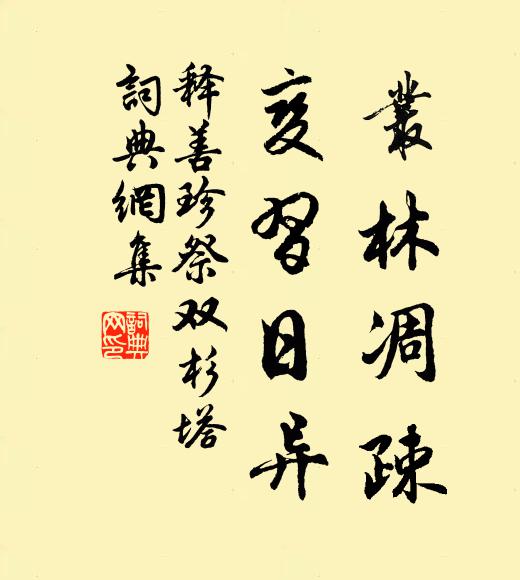 叢林凋疎
变習日异
释善珍祭双杉塔
詞典網集
詞典
网印